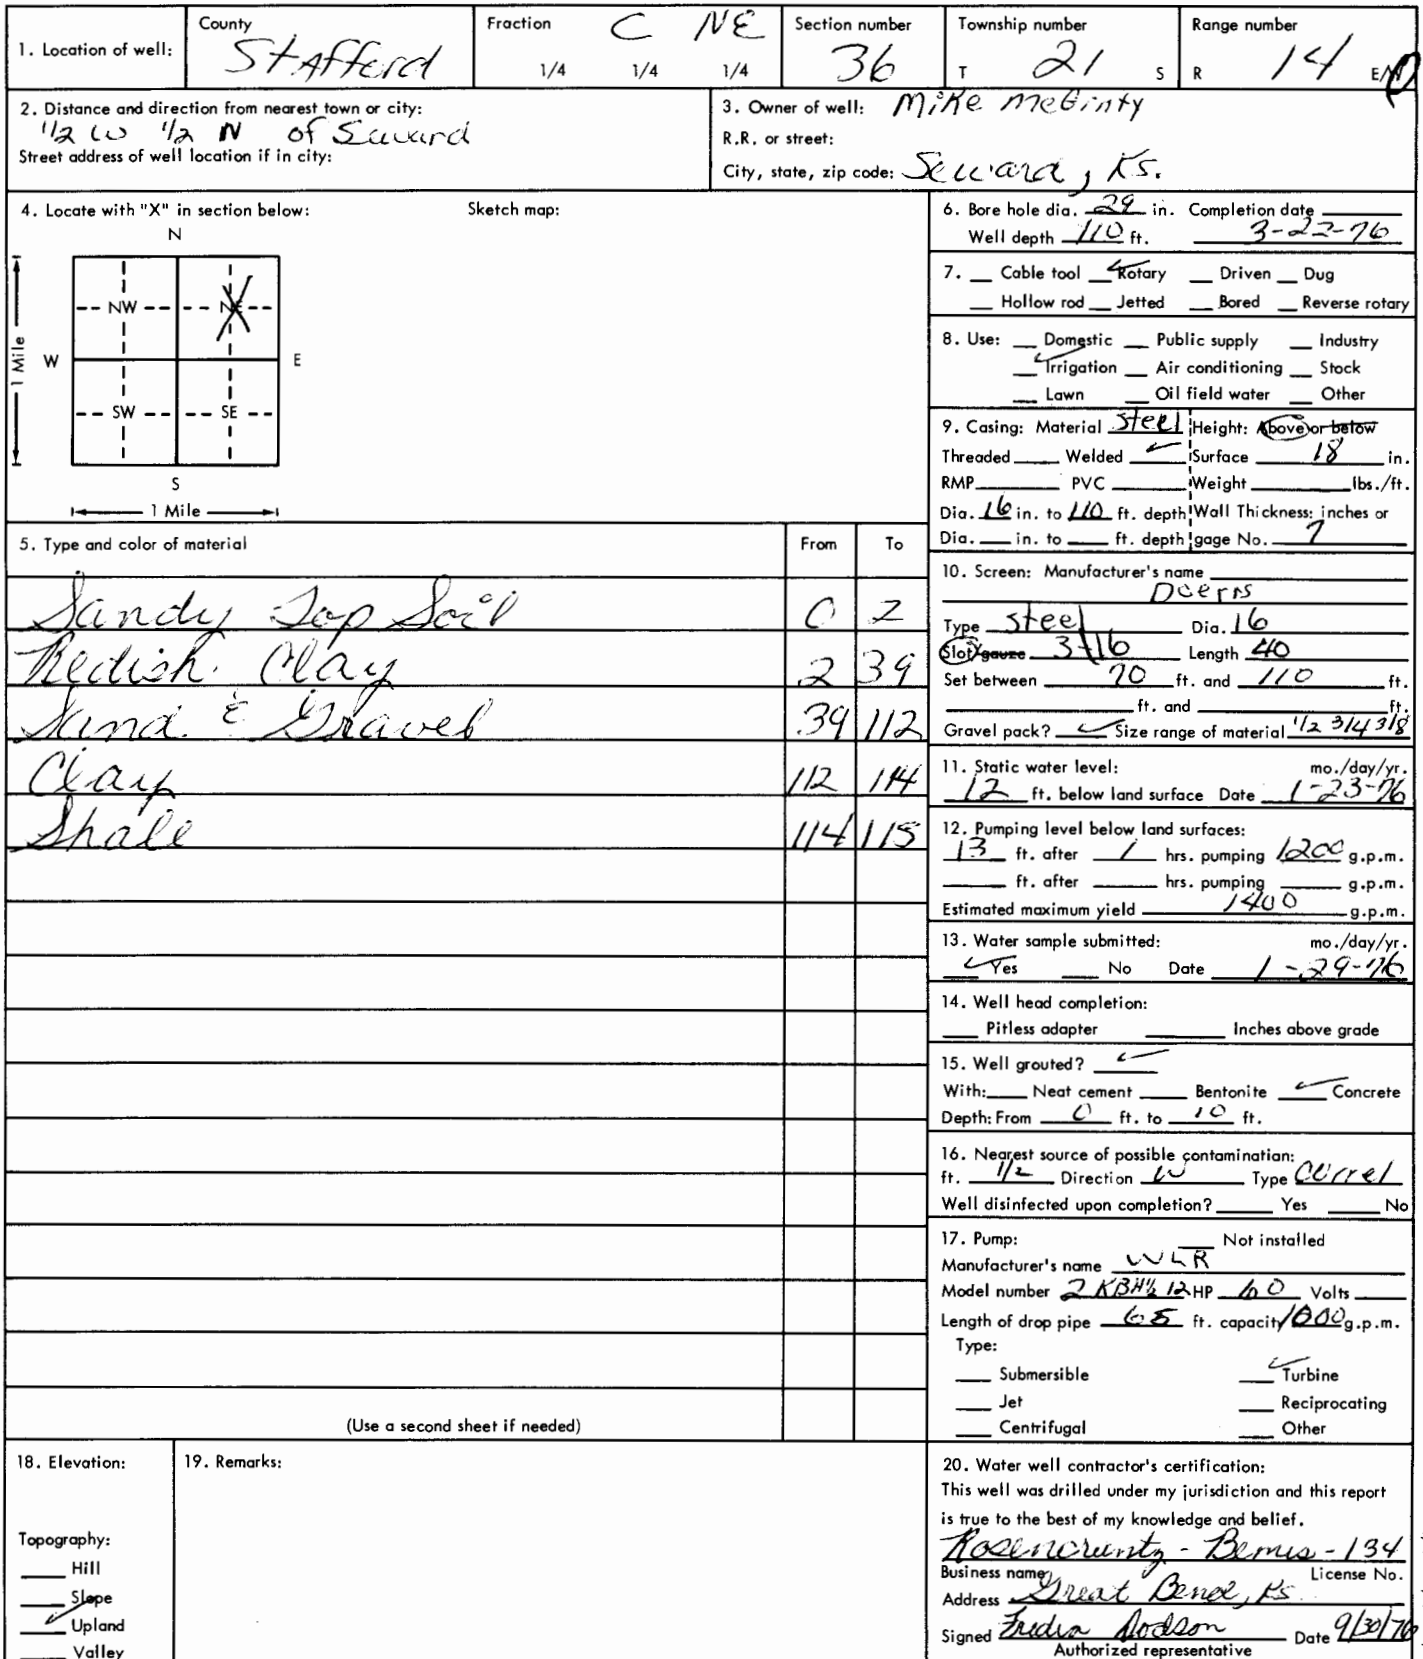 1. Location of well: County Stafford Fraction C NE 1/4 1/4 1/4 Section number 36 Township number T 21 S Range number R 14 E/W
2. Distance and direction from nearest town or city:
1/2 W 1/2 N of Seward
Street address of well location if in city:
3. Owner of well: Mike McGinty
R.R. or street:
City, state, zip code: Seward, Ks.
4. Locate with "X" in section below: Sketch map:
N
NW NE
W E
1 Mile
SW SE
S
1 Mile
5. Type and color of material From To
Sandy Top Soil 0 2
Redish Clay 2 39
Sand & Gravel 39 112
Clay 112 114
Shale 114 115
(Use a second sheet if needed)
6. Bore hole dia. 29 in. Completion date
Well depth 110 ft. 3-22-76
7. Cable tool ✓ Rotary Driven Dug
Hollow rod Jetted Bored Reverse rotary
8. Use: Domestic Public supply Industry
✓ Irrigation Air conditioning Stock
Lawn Oil field water Other
9. Casing: Material steel Height: Above or below
Threaded Welded ✓ Surface 18 in.
RMP PVC Weight lbs./ft.
Dia. 16 in. to 110 ft. depth Wall Thickness: inches or
Dia. in. to ft. depth gage No. 7
10. Screen: Manufacturer's name
Doerrs
Type steel Dia. 16
Slot/gauze 3-16 Length 40
Set between 70 ft. and 110 ft.
ft. and ft.
Gravel pack? ✓ Size range of material 1/2 3/4 3/8
11. Static water level: mo./day/yr.
12 ft. below land surface Date 1-23-76
12. Pumping level below land surfaces:
13 ft. after 1 hrs. pumping 1200 g.p.m.
ft. after hrs. pumping g.p.m.
Estimated maximum yield 1400 g.p.m.
13. Water sample submitted: mo./day/yr.
✓ Yes No Date 1-29-76
14. Well head completion:
Pitless adapter Inches above grade
15. Well grouted? ✓
With: Neat cement Bentonite ✓ Concrete
Depth: From 0 ft. to 10 ft.
16. Nearest source of possible contamination:
ft. 1/2 Direction W Type Correl
Well disinfected upon completion? Yes No
17. Pump: Not installed
Manufacturer's name WLR
Model number HP 60 Volts
Length of drop pipe 65 ft. capacity 1000 g.p.m.
Type:
Submersible ✓ Turbine
Jet Reciprocating
Centrifugal Other
18. Elevation:
Topography:
Hill
Slope
✓ Upland
Valley
19. Remarks:
20. Water well contractor's certification:
This well was drilled under my jurisdiction and this report
is true to the best of my knowledge and belief.
Rosencrantz - Bemis - 134
Business name License No.
Address Great Bend, Ks
Signed Dodson Date 9/30/76
Authorized representative